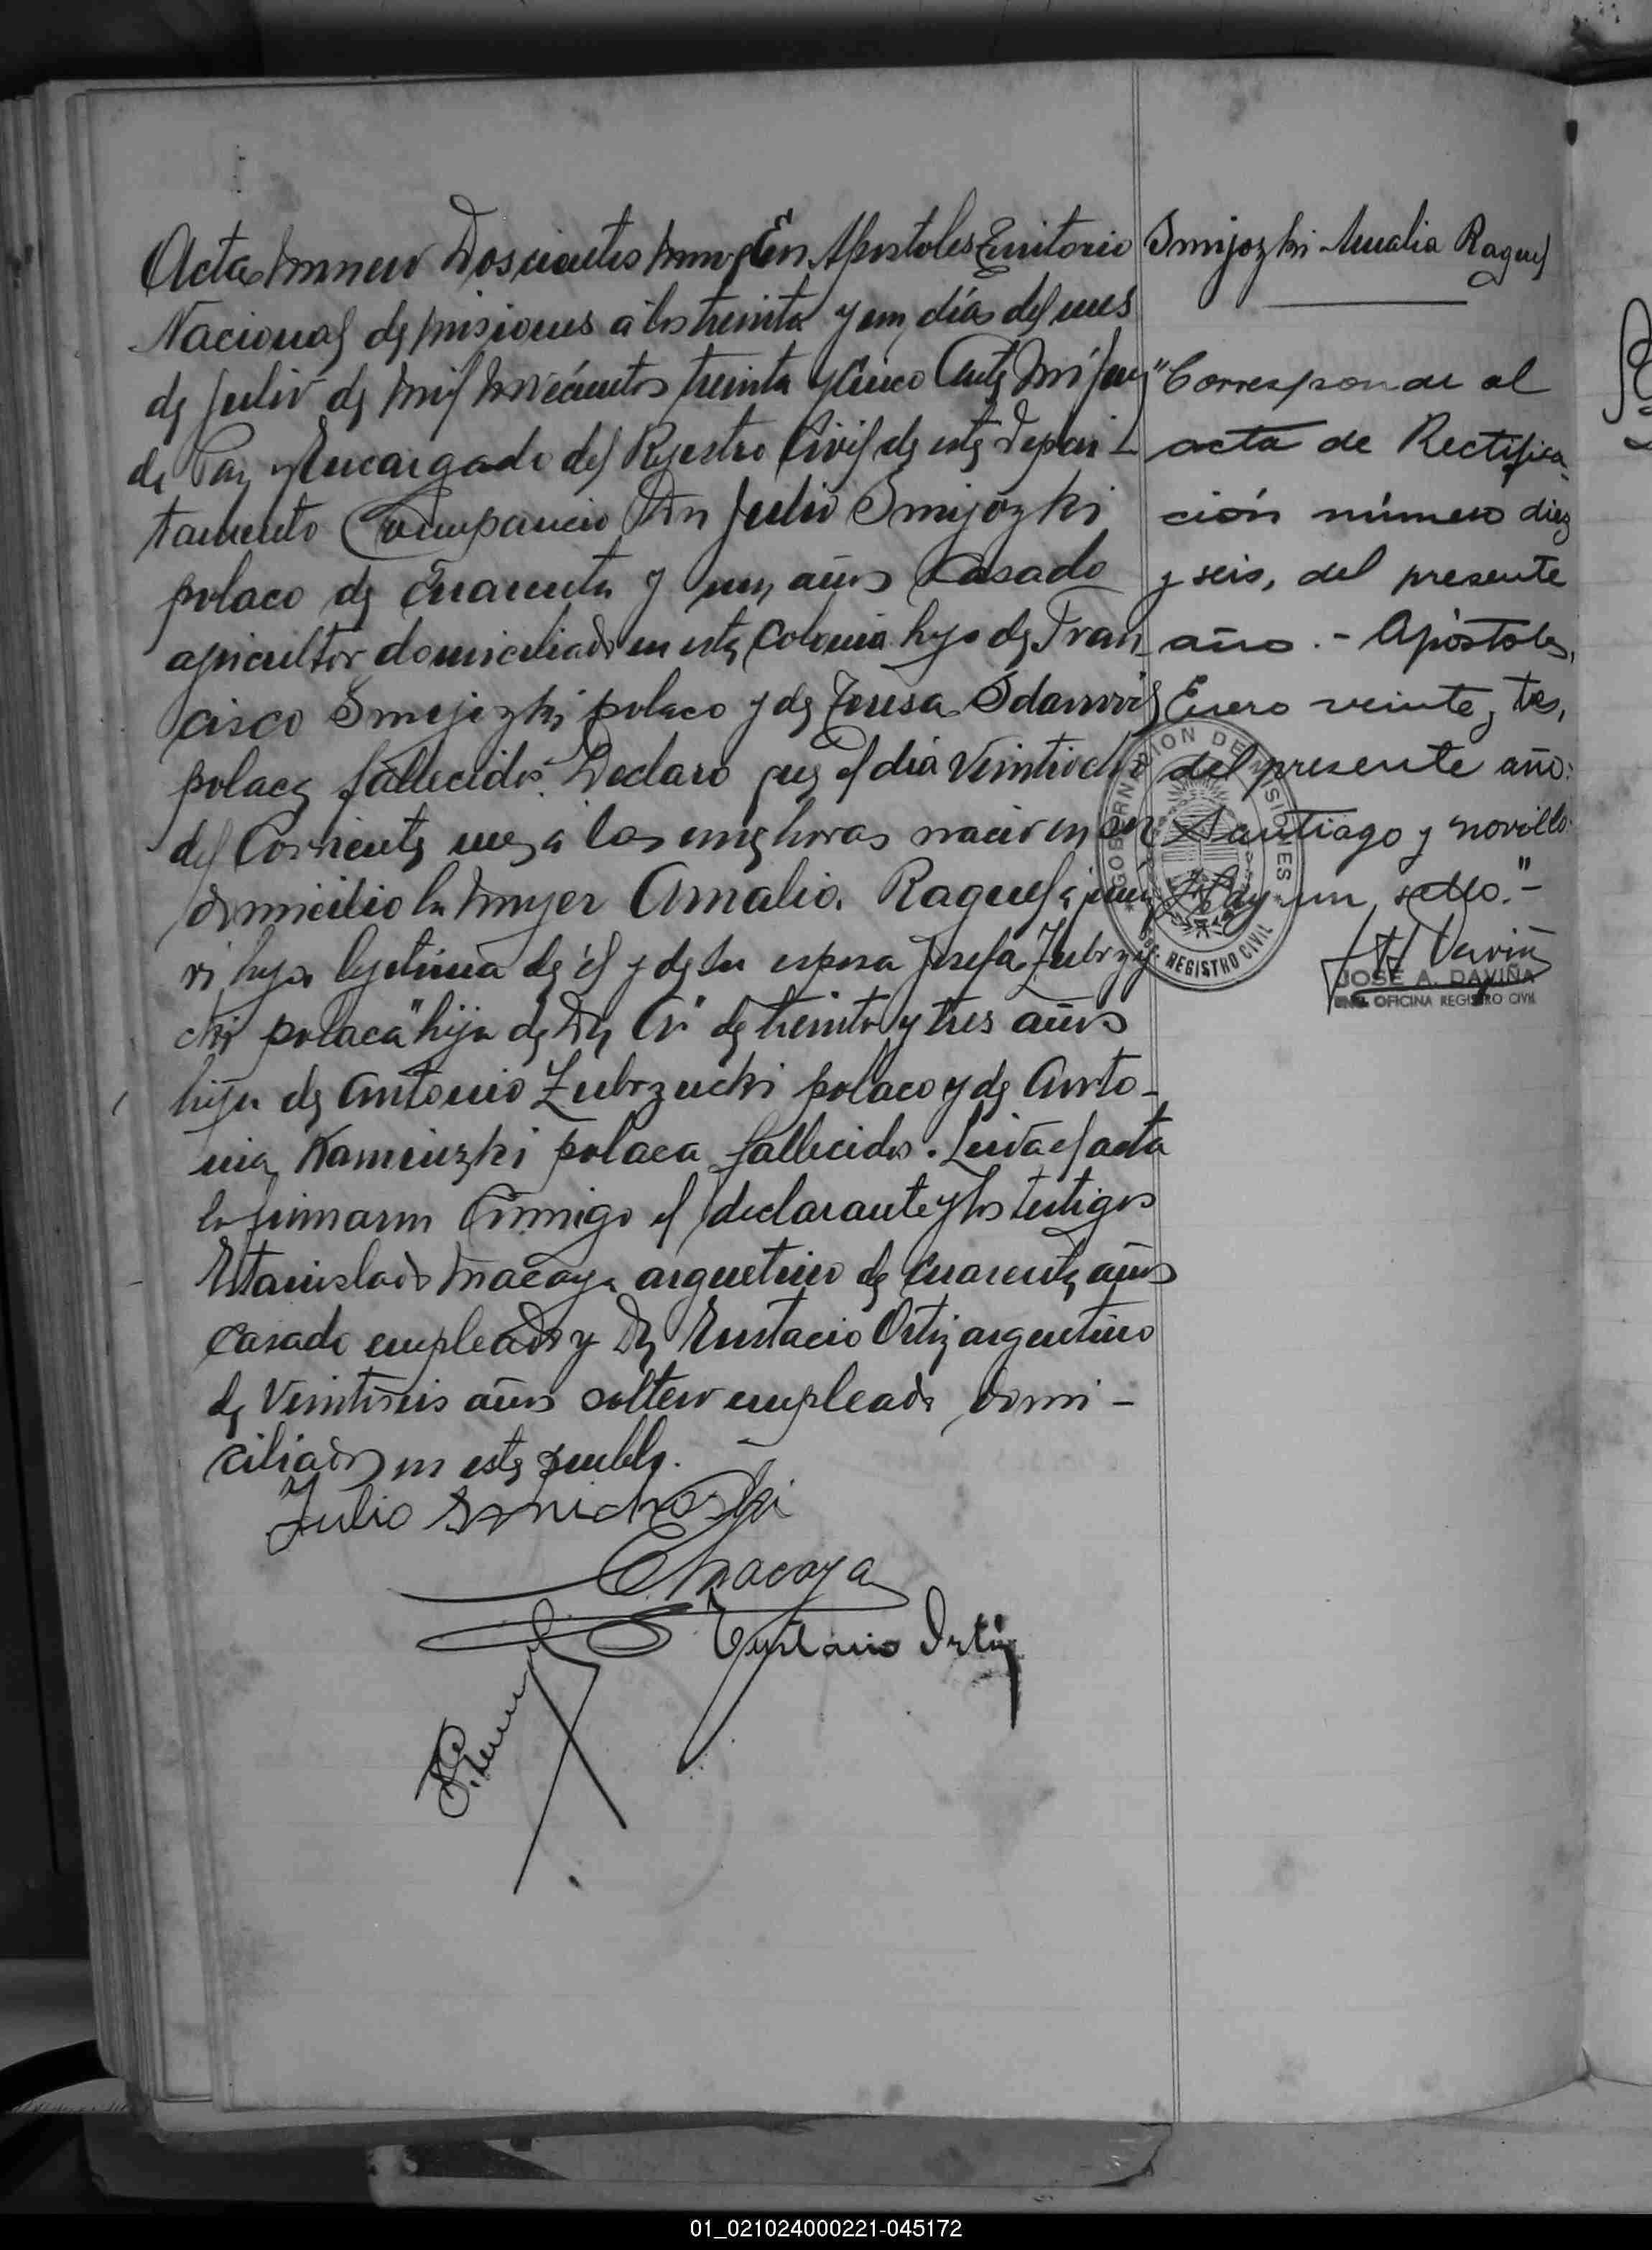 Acta número Doscientos En Apostoles Territorio
Nacional de Misiones a los treinta y un días del mes
de Julio de mil novecientos treinta y cinco Ante Mí Juez
de Paz y Encargado del Rejestro Civil de este Depar-
tamento Compareció Don Julio Smijozki
polaco de Cuarenta y un años Casado
agricultor domiciliado en esta Colonia hijo de Fran
cisco Smijozki polaco y de Teresa
polaca fallecidos. Declaro que el día Veintiocho
del Corriente mes a las once horas nació en su
domicilio la mujer Amalia Raquel
hija lejetima de él y de su esposa Josefa Zubrzy
cki polaca "hija de Dn A" de treinta y tres años
hija de Antonio Zubrzucki polaco y de Anto-
nia Kaminzki polaca fallecidos. Leida el acta
la firmaron Conmigo el declarante y los testigos
Estanislado Macaya argentino de Cuarenta años
Casado empleado y Dn Eustacio Ortiz argentino
de Veintiseis años soltero empleado domi-
ciliados en este pueblo.
Julio Smichoski
EMacaya
Eustacio Ortiz
Smijozki Amalia Raquel
"Corresponde al
acta de Rectifica-
ción número diez
y seis, del presente
año.- Apóstoles,
Enero veinte y tres,
del presente año:
Santiago y novillo:
Hay un sello."-
GOBERNACION DE MISIONES
REGISTRO CIVIL
JOSE A. DAVIÑA
ENC. OFICINA REGISTRO CIVIL
01_021024000221-045172